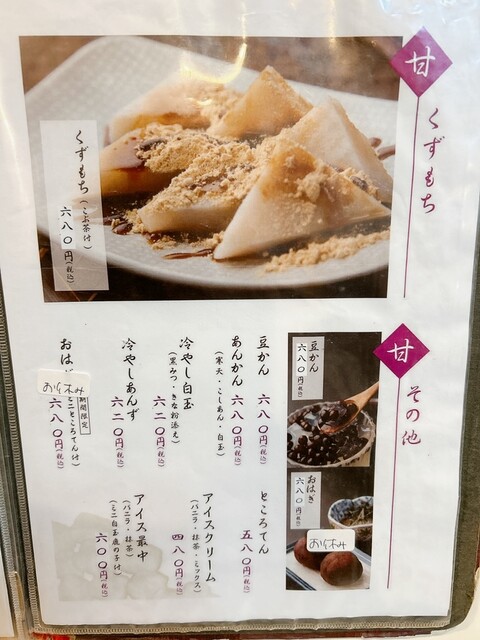 甘 くずもち
くずもち(こぶ茶付)
六八〇円(税込)
甘 その他
豆かん
六八〇円(税込)
おはぎ
六八〇円(税込)
お休み
豆かん 六八〇円(税込)
あんかん 六八〇円(税込)
(寒天・こしあん・白玉)
冷やし白玉 六二〇円(税込)
(黒みつ・きな粉添え)
冷やしあんず 六二〇円(税込)
期間限定
おは
お休み
ミニところてん付)
六八〇円(税込)
ところてん 五八〇円(税込)
アイスクリーム 四八〇円(税込)
(バニラ・抹茶・ミックス)
アイス最中 六〇〇円(税込)
(バニラ・抹茶)
(ミニ白玉鹿の子付)